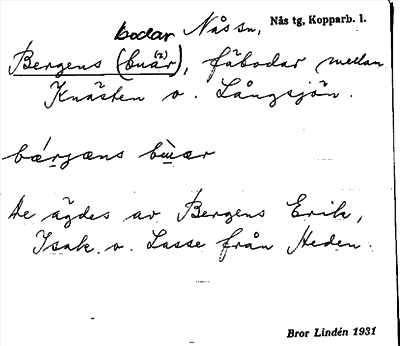 bodar Nås sn, Nås tg, Kopparb. l.
Bergens (buär(?)), fäbodar mellan
Knästen o. Långsjön.
bárjæns bùær
De ägdes av Bergens Erik,
Isak o. Lasse från Heden.
Bror Lindén 1931